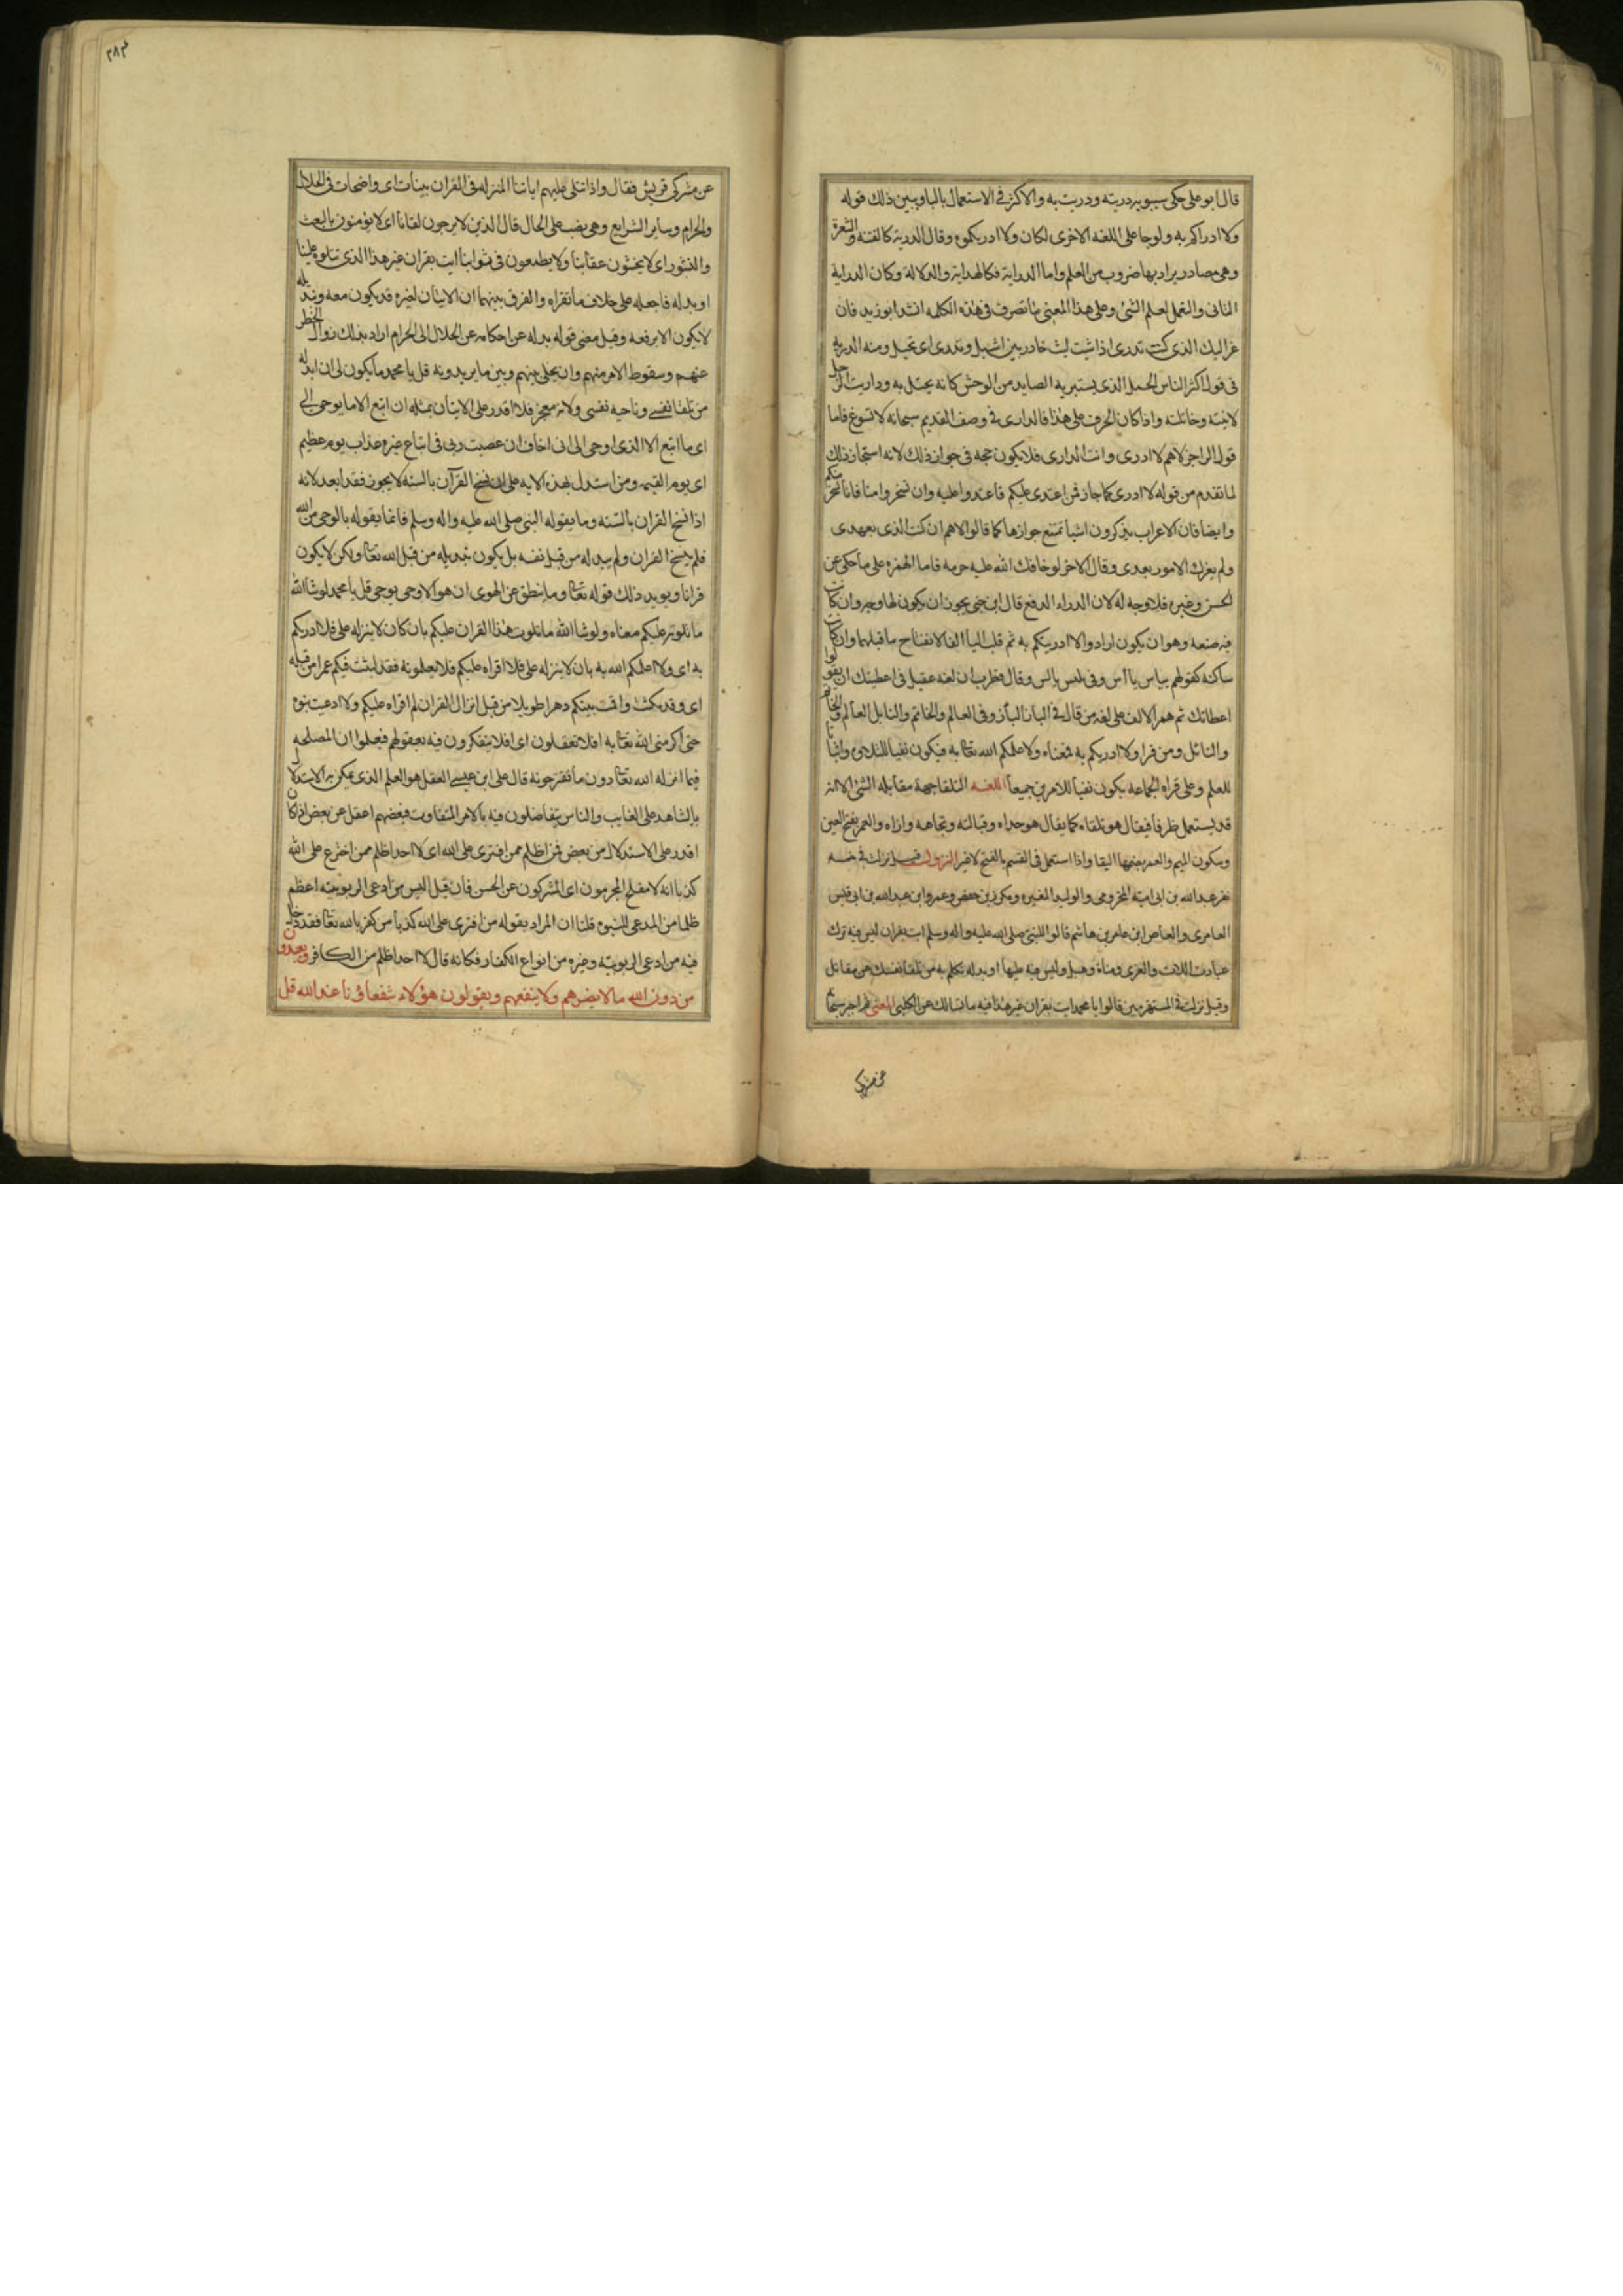 قال ابو علي حكى سيبويه دريته ودريت به والاكثر في الاستعمال بالبا ويبين ذلك قوله
ولا ادراكم به ولو جا على اللغه الاخرى لكان ولا ادريكموه وقال الدرية كالفتنه والشعرة
وهي مصادر يراد بها ضروب من العلم واما الدراية فكالهداية والدلالة وكان الدراية
التاني والتعمل لعلم الشئ وعلى هذا المعنى ما تصرف في هذه الكلمه انشد ابو زيد فان
غزالك الذي كنت تدرى اذا شيت ليث خادر بين اشبل وتدرى اى تختل ومنه الدرية
في قول اكثر الناس الجمل الذى يستتر به الصايد من الوحش كانه يختل به وداريت الرجل
لاينته وخاتلته واذا كان الحرف على هذا فالدارى في وصف القديم سبحانه لا تسوغ فاما
قول الراجز لاهم لا ادرى وانت الدارى فلا يكون حجه في جواز ذلك لانه استجاز ذلك
لما تقدم من قوله لا ادرى كما جاز فمن اعتدى عليكم فاعتدوا عليه وان تسخروا منا فانا نسخر منكم
وايضا فان الاعراب يذكرون اشيا تمتنع جوازها كما قالوا لاهم ان كنت الذى بعهدى
ولم يغرك الامور بعدى وقال الاخر لو خافك الله عليه حرمه فاما الهمزه على ما حكى عن
الحسن وغيره فلا وجه له لان الدراء الدفع قال ابن جني يجوز ان يكون لها وجه وان كانت
فيه صنعه وهو ان يكون ارادوا الا ادريتكم به ثم قلب اليا الفا لانفتاح ما قبلها وان كانت
ساكنه كقولهم بياس ياأس وفي يلبس يالس وقال قطرب ان لغه عقيل في اعطيتك ان يقولوا
اعطاتك ثم همز الالف على لغه من قال في الباز البأز وفي العالم والخاتم والتابل العألم والخأتم
والتائل ومن قرا ولا ادريكم به فمعناه ولا علمكم الله تعالى به فيكون نفيا للتلاوة واثباتا
للعلم وعلى قراه الجماعه يكون نفيا للامرين جميعا اللغـه التلقا جهة مقابله الشئ الا انه
قد يستعمل ظرفا فيقال هو تلقاه كما يقال هو حذاه وقبالته وتجاهه وازاه والعمر بفتح العين
وسكون الميم والعمر بضمها البقا واذا استعمل في القسم بالفتح لا غير النزول قيل نزلت في خمسه
نفر عبد الله بن ابى امية المخزومى والوليد المغيره ومكرز بن حفص وعمرو ابن عبد الله بن ابى قيس
العامرى والعاص ابن عامر بن هاشم قالوا للنبى صلى الله عليه واله وسلم ايت بقران ليس فيه ترك
عبادت اللات والعزى ومناة وهبل وليس فيه عليها او بدله تكلم به من تلقا نفسك عن مقاتل
وقيل نزلت في المستهزيين قالوا يا محمد ايت بقران غير هذا فيه ما نسالك عن الكلبي المعنى ثم اخبر سبحانه
عن مشركى
٢٨٣
عن مشركى قريش فقال واذا تتلى عليهم اياتنا المنزله في القران بينات اى واضحات في الحلال
والحرام وساير الشرايع وهي نصب على الحال قال الذين لا يرجون لقانا اى لا يومنون بالبعث
والنشور اى لا يخشون عقابنا ولا يطمعون في ثوابنا ايت بقران غير هذا الذى تتلوه علينا
او بدله فاجعله على خلاف ما تقراه والفرق بينهما ان الاتيان لغيره قد يكون معه وتبديله
لا يكون الا برفعه وقيل معنى قوله بدله عن احكامه عن الحلال الى الحرام اراد بذلك زوال الحظر
عنهم وسقوط الامر منهم وان يخلى بينهم وبين ما يريدونه قل يا محمد ما يكون لى ان ابدله
من تلقا نفسى وناحيه نفسى ولانه معجز فلا اقدر على الاتيان بمثله ان اتبع الا ما يوحى الى
اى ما اتبع الا الذى اوحى الى انى اخاف ان عصيت ربى في اتباع غيره عذاب يوم عظيم
اى يوم القيمه ومن استدل بهذه الايه على ان نسخ القرآن بالسنه لا يجوز فقد ابعد لانه
اذا نسخ القران بالسنه وما يقوله النبى صلى الله عليه واله وسلم فانما يقوله بالوحى من الله
فلم ينسخ القران ولم يبدله من قبل نفسه بل يكون تبديله من قبل الله تعالى ولكن لا يكون
قرانا ويويد ذلك قوله تعالى وما ينطق عن الهوى ان هو الا وحى يوحى قل يا محمد لو شا الله
ما تلوته عليكم معناه ولو شا الله ما تلوت هذا القران عليكم بان كان لا ينزله على فلا ادريكم
به اى ولا اعلمكم الله به بان لا ينزله على فلا اقراه عليكم فلا تعلمونه فقد لبثت فيكم عمرا من قبله
اى وقد مكثت واقمت بينكم دهرا طويلا من قبل انزال القران لم اقراه عليكم ولا ادعيت نبوه
حتى اكرمنى الله تعالى به افلا تعقلون اى افلا يتفكرون فيه بعقولهم فعلموا ان المصلحه
فيما انزله الله تعالى دون ما تقترحونه قال على ابن عيسى العقل هو العلم الذى يمكن به الاستدلال
بالشاهد على الغايب والناس يتفاضلون فيه بالامر المتفاوت فبعضهم اعقل عن بعض اذا كان
اقدر على الاستدلال من بعض فمن اظلم ممن افترى على الله اى لا احد اظلم ممن اخترع على الله
كذبا انه لا يفلح المجرمون اى المشركون عن الحسن فان قيل اليس من ادعى الربوبيه اعظم
ظلما من المدعى للنبوه قلنا ان المراد بقوله من افترى على الله كذبا من كفر بالله تعالى فقد دخل
فيه من ادعى الربوبيه وغيره من انواع الكفار فكانه قال لا احد اظلم من الكافر ويعبدون
من دون الله ما لا يضرهم ولا ينفعهم ويقولون هؤلاء شفعاؤنا عند الله قل